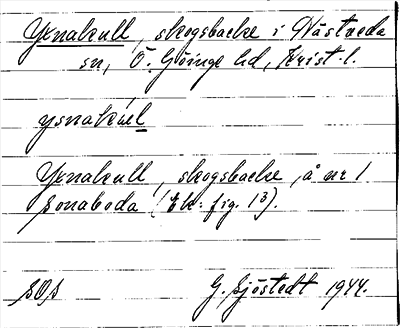 Ysnakull, skogsbacke i Västveda
sn, Ö. Göinge hd, Krist. l.
ysnakúel
Ysnakull, skogsbacke, å nr 1
Sonaboda (Ek: fig. 13).
SOS G. Sjöstedt 1944.